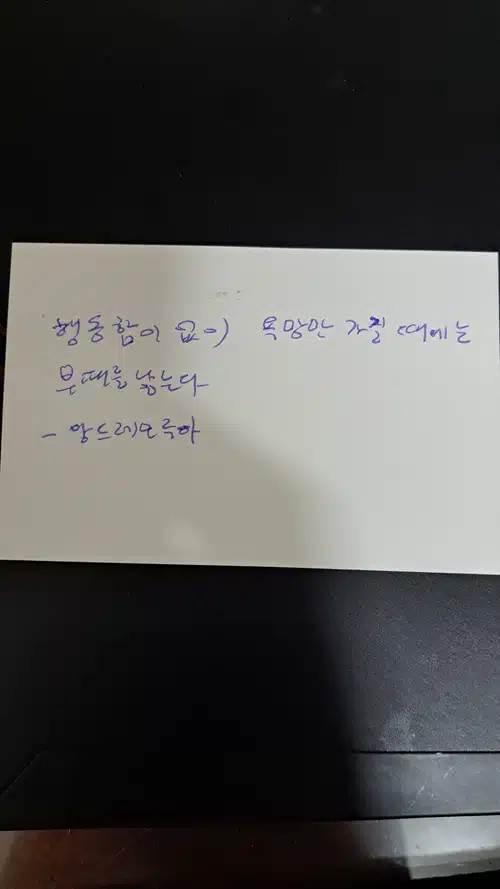 행동함이 없이 욕망만 가질 때에는
부패를 낳는다
- 앙드레모루아